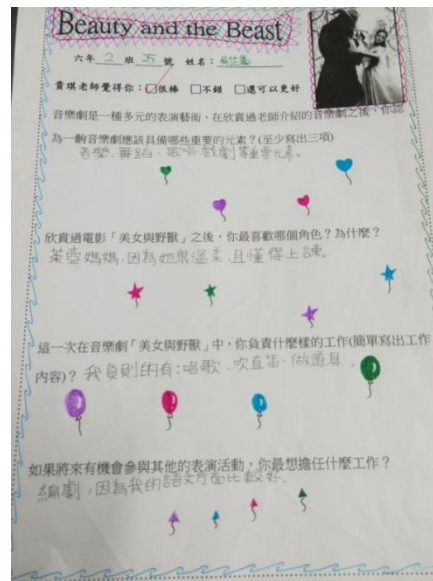 Beauty and the Beast
六年 2 班 25 號 姓名：
貴琪老師覺得你：□很棒 □不錯 □還可以更好
音樂劇是一種多元的表演藝術，在欣賞過老師介紹的音樂劇之後，你認
為一齣音樂劇應該具備哪些重要的元素？(至少寫出三項)
音樂、舞蹈、歌唱戲劇等重要元素。
欣賞過電影「美女與野獸」之後，你最喜歡哪個角色？為什麼？
茶壺媽媽，因為她很溫柔，且懂得上諫。
這一次在音樂劇「美女與野獸」中，你負責什麼樣的工作(簡單寫出工作
內容)？我負則的有：唱歌、吹直笛、做道具。
如果將來有機會參與其他的表演活動，你最想擔任什麼工作？
編劇，因為我的語文方面比較好。